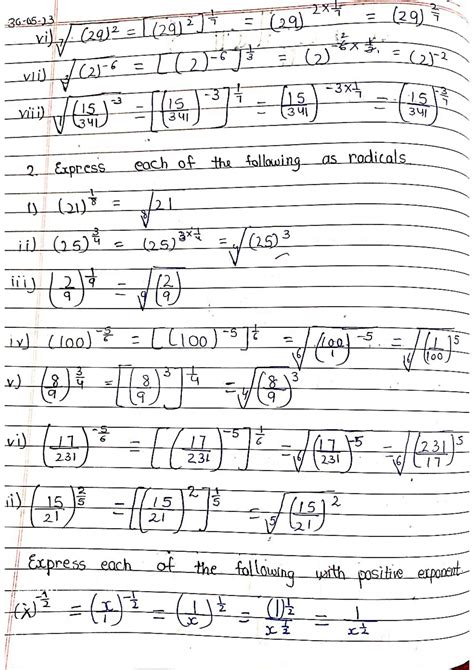 30-05-23
vi) ⁷√(29)² = [(29)²]^1/7 = (29)^2×1/7 = (29)^2/7
vii) ³√(2)⁻⁶ = [(2)⁻⁶]^1/3 = (2)^-6×1/3 = (2)⁻²
viii) ⁷√(15/341)⁻³ = [(15/341)⁻³]^1/7 = (15/341)^-3×1/7 = (15/341)^-3/7
2. Express each of the following as radicals
i) (21)^1/8 = ⁸√21
ii) (25)^3/4 = (25)^3×1/4 = ⁴√(25)³
iii) (2/9)^1/9 = ⁹√(2/9)
iv) (100)^-5/6 = [(100)⁻⁵]^1/6 = ⁶√(100/1)⁻⁵ = ⁶√(1/100)⁵
v) (8/9)^3/4 = [(8/9)³]^1/4 = ⁴√(8/9)³
vi) (17/231)^-5/6 = [(17/231)⁻⁵]^1/6 = ⁶√(17/231)⁻⁵ = ⁶√(231/17)⁵
ii) (15/21)^2/5 = [(15/21)²]^1/5 = ⁵√(15/21)²
Express each of the following with positive exponent
(x)^-1/2 = (x/1)^-1/2 = (1/x)^1/2 = (1)^1/2/x^1/2 = 1/x^1/2